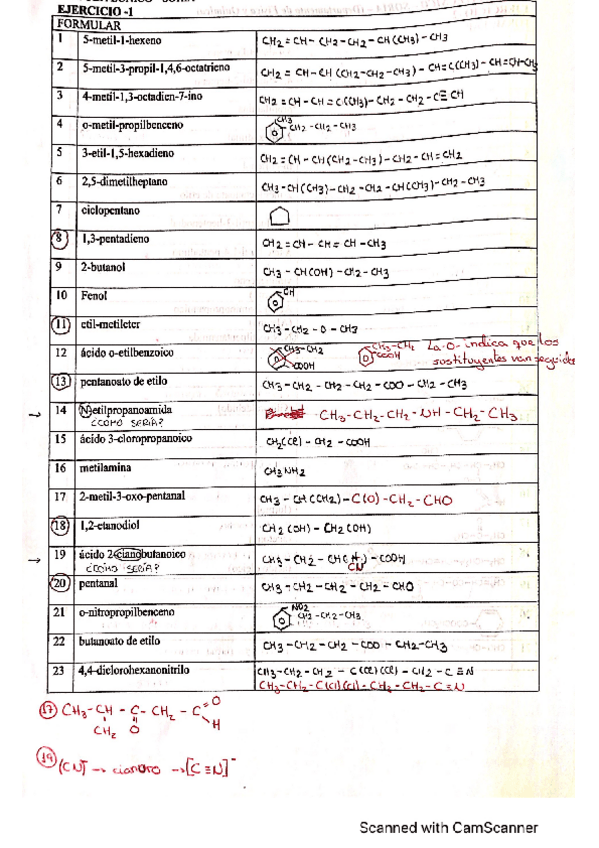 EJERCICIO -1
FORMULAR
1 5-metil-1-hexeno CH2=CH-CH2-CH2-CH(CH3)-CH3
2 5-metil-3-propil-1,4,6-octatrieno CH2=CH-CH(CH2-CH2-CH3)-CH=C(CH3)-CH=CH-CH3
3 4-metil-1,3-octadien-7-ino CH2=CH-CH=C(CH3)-CH2-CH2-C≡CH
4 o-metil-propilbenceno CH3 CH2-CH2-CH3
5 3-etil-1,5-hexadieno CH2=CH-CH(CH2-CH3)-CH2-CH=CH2
6 2,5-dimetilheptano CH3-CH(CH3)-CH2-CH2-CH(CH3)-CH2-CH3
7 ciclopentano
8 1,3-pentadieno CH2=CH-CH=CH-CH3
9 2-butanol CH3-CH(OH)-CH2-CH3
10 Fenol OH
11 etil-metileter CH3-CH2-O-CH3
12 ácido o-etilbenzoico CH3-CH2 COOH CH3-CH2 COOH La -o- indica que los
sustituyentes van seguidos
13 pentanoato de etilo CH3-CH2-CH2-CH2-COO-CH2-CH3
14 N-etilpropanoamida CH3-CH2-CH2-NH-CH2-CH3
¿CÓMO SERÍA?
15 ácido 3-cloropropanoico CH2(Cl)-CH2-COOH
16 metilamina CH3NH2
17 2-metil-3-oxo-pentanal CH3-CH(CH2)-C(O)-CH2-CHO
18 1,2-etanodiol CH2(OH)-CH2(OH)
19 ácido 2-cianobutanoico CH3-CH2-CH( )-COOH
¿CÓMO SERÍA? CN
20 pentanal CH3-CH2-CH2-CH2-CHO
21 o-nitropropilbenceno NO2 CH2-CH2-CH3
22 butanoato de etilo CH3-CH2-CH2-COO-CH2-CH3
23 4,4-diclorohexanonitrilo CH3-CH2-CH2-C(Cl)(Cl)-CH2-C≡N
CH3-CH2-C(Cl)(Cl)-CH2-CH2-C≡N
17 CH3-CH-C-CH2-C O
CH2 O H
19 (CN)- → cianuro → [C≡N]-
Scanned with CamScanner